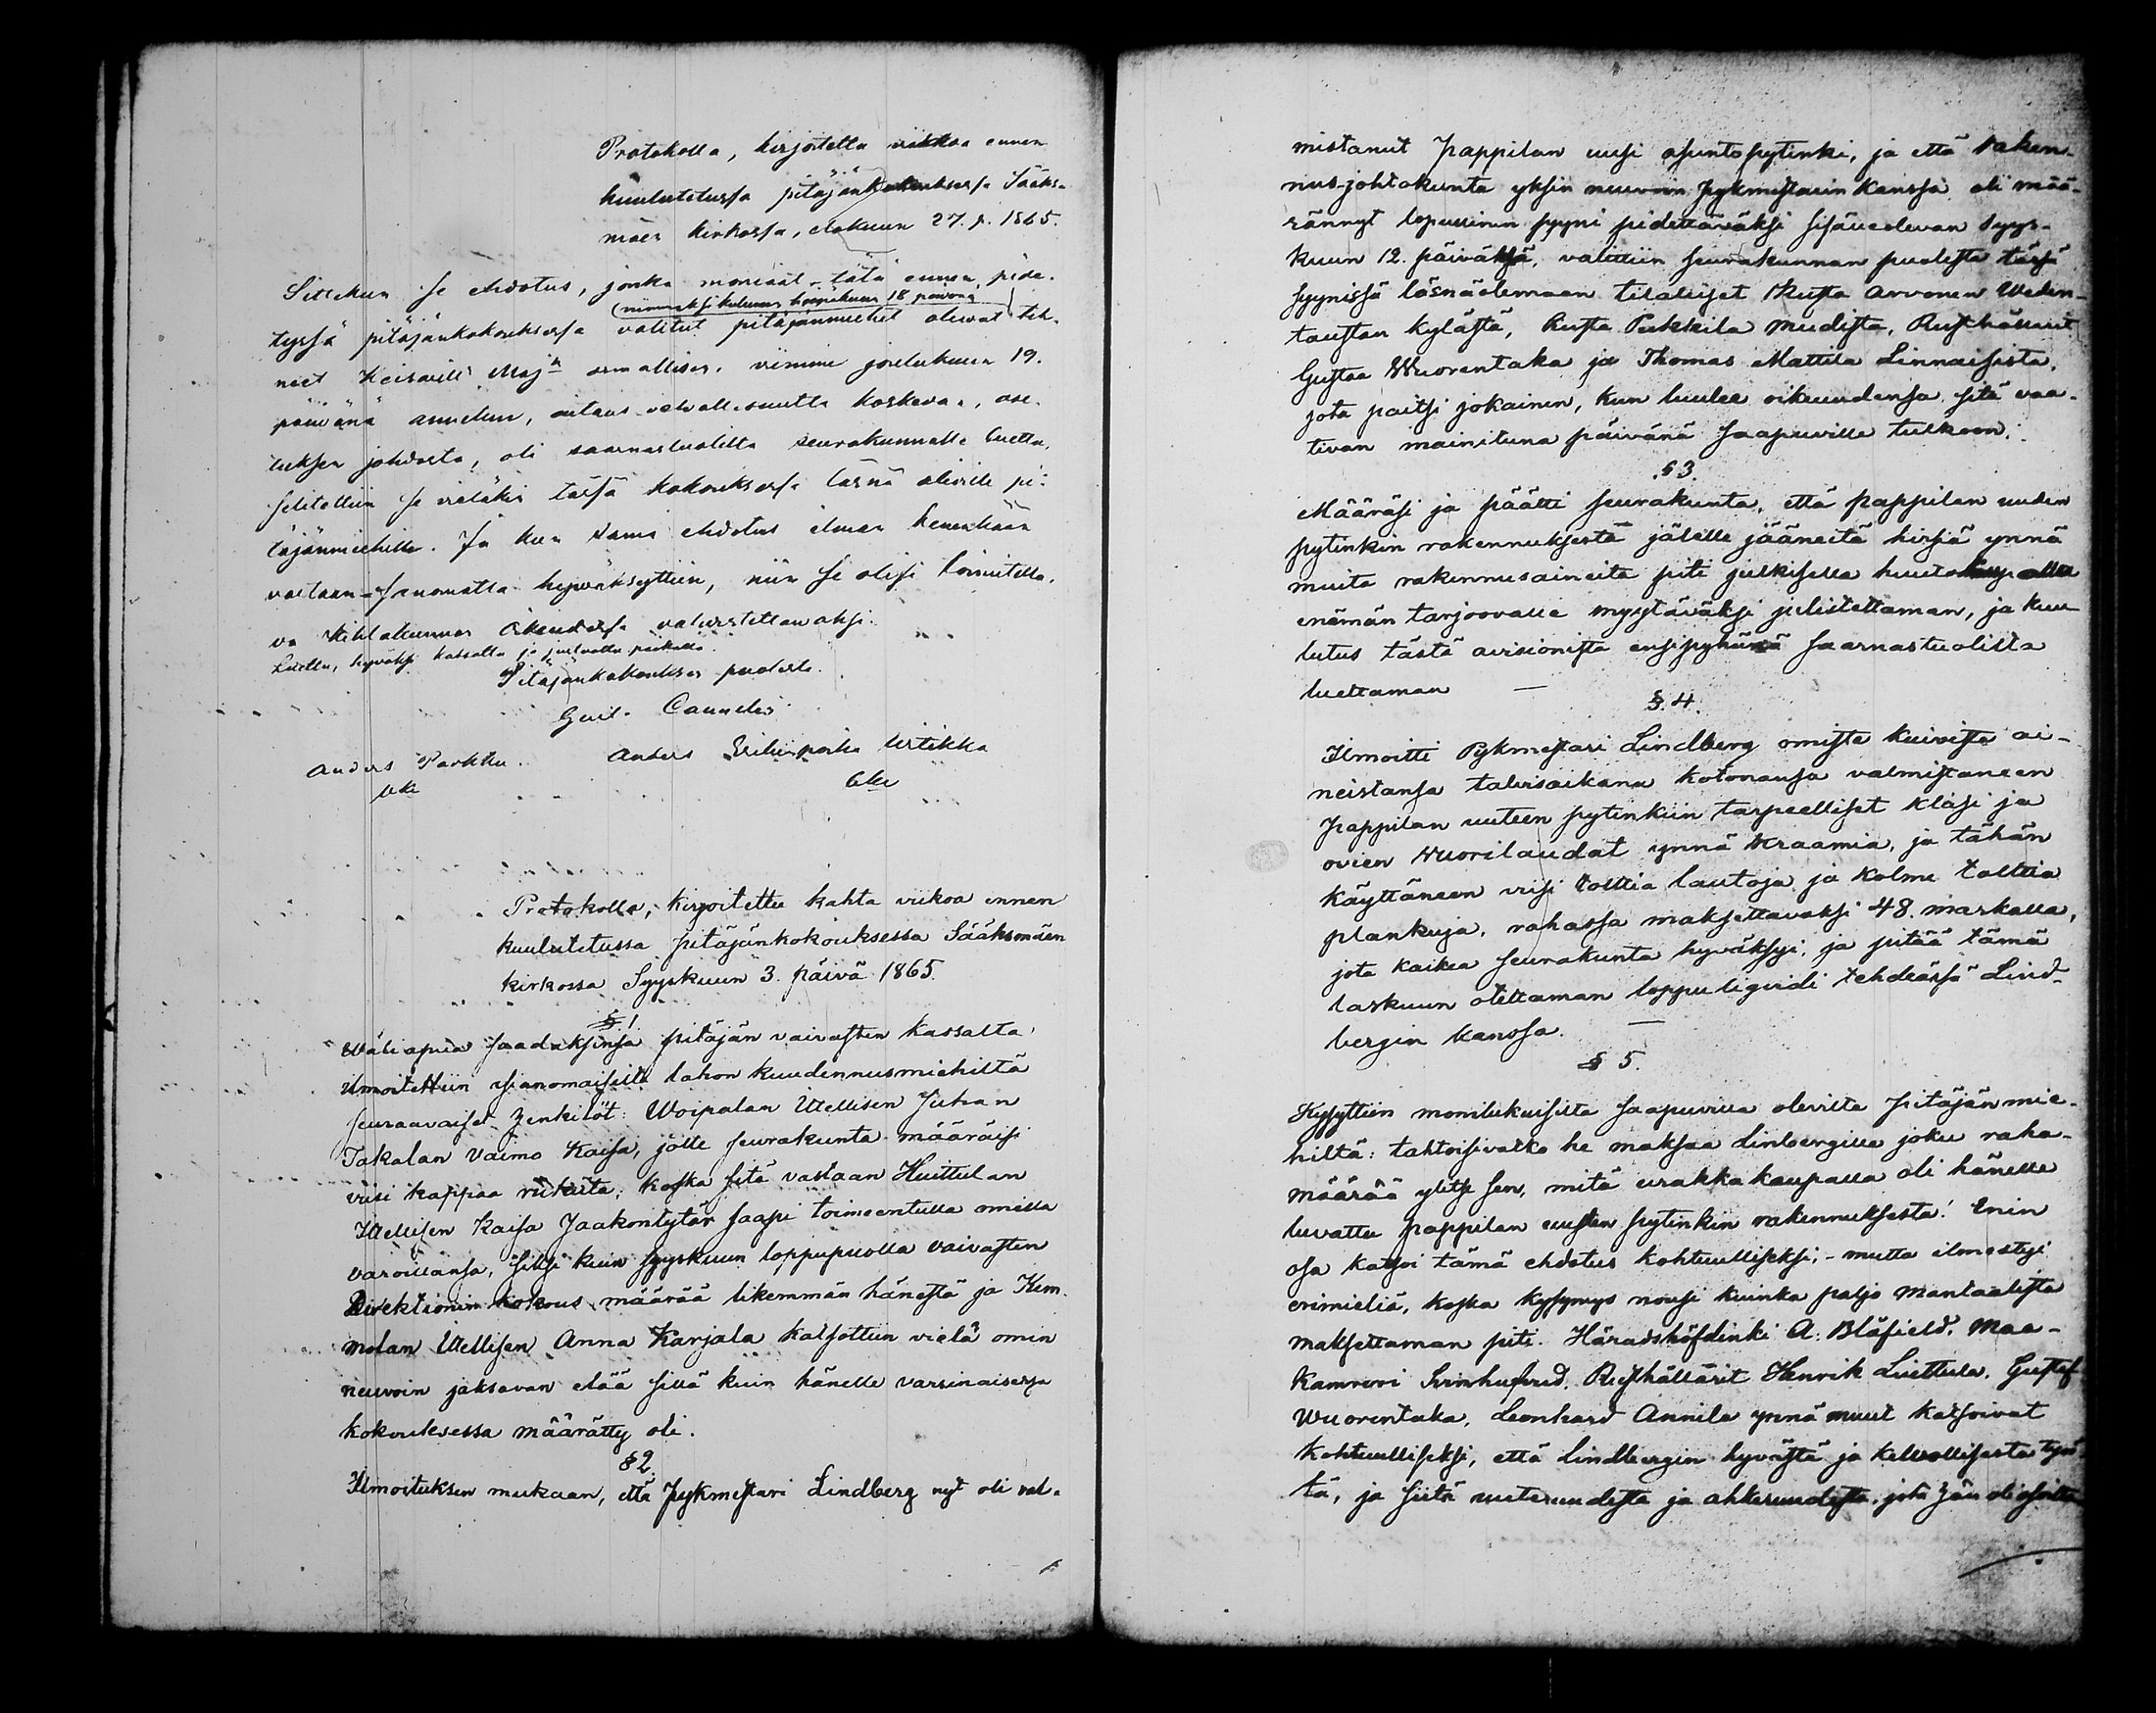 Protokolla, kirjoitettu viikkoa ennen
kuulutetussa pitäjänkokouksessa Sääks-
mäen kirkossa, elokuun 27. p. 1865.
Sittekun se ehdotus, jonka moniaat tätä ennen, pide-
(nimittäin kuluvan heinäkuun 18 päivänä)
tyssä pitäjänkokouksessa valitut pitäjänmiehet olivat teh-
neet Keisarill Maj:n armollisen, viimme joulukuun 19.
päivänä annetun, asetus
tuksen johdosta, oli saarnastuolilta seurakunnalle luettu,
selitettiin se vieläkin tässä kokouksessa läsnä oleville pi-
täjänmiehille. Ja kun sama ehdotus ilman kenenkään
vastaan-sanomatta hyväksyttiin, niin se olisi toimitetta-
va Kihlakunnan Oikeudessa vahvistettavaksi.
Luettu, hyväksi katsottu ja
Pitäjänkokouksen puolesta.
Guil. Caunelin
Anders Parkku. Anders Erikinpoika Urtikka
Protokolla, kirjoitettu kahta viikoa ennen
kuulutetussa pitäjänkokouksessa Sääksmäen
kirkossa Syyskuun 3. päivä 1865.
§. 1.
Wäliapua saadaksensa pitäjän vaivasten kassalta,
ilmoitettiin asianomaisilta lahon kuudennusmiehiltä
seuraavaiset henkilöt: Woipalan Itellisen Juhan
Takalan Vaimo Kaisa, jolle seurakunta määräisi
viisi kappaa rukiita, koska sitä vastaan Huittulan
Itellisen Kaisa Jaakontytär saapi toimeentulla omilla
varoillansa, siksi kuin syyskuun loppupuolla vaivasten
Direktionin kokous määrää likemmän hänestä ja Kem-
molan Itellisen Anna Karjala katsottiin vielä omin
neuvoin jaksavan elää sillä kuin hänelle varsinaisessa
kokouksessa määrätty oli.
§ 2.
Ilmoituksen mukaan, että Pykmestari Lindberg nyt oli val-
mistanut Pappilan uusi asuntopytinki, ja että raken-
nus-johtokunta yksin neuvoin Pykmestarin kanssa oli mää-
rännyt lopullinen syyni pidettäväksi sisäuolevan Syys-
kuun 12. päivänä, valittiin seurakunnan puolesta tässä
syynissä läsnäolemaan tilalliset Kusta Arvonen Weden-
taustan kylästä, Kusta Pukkila Mudista, Rusthållarit
Gustaa Wuorentaka ja Thomas Mattila Linnaisista,
jota paitsi jokainen, kun luulee oikeudensa sitä vaa-
tivan mainituna päivänä saapuville tulkoon.
§ 3.
Määräsi ja päätti seurakunta, että pappilan uuden
pytinkin rakennuksesta jälille jääneitä hirsiä ynnä
muita rakennusaineita piti julkisella huutokaupalla
enämän tarjoovalle myytäväksi julistettaman, ja kuu-
lutus tästä avisionista ensipyhänä saarnastuolilta
luettaman —
§. 4.
Ilmoitti Pykmestari Lindberg omista kuivista ai-
neistansa talvisaikana kotonansa valmistaneen
Pappilan uuteen pytinkiin tarpeelliset klasi ja
ovien Wuorilaudat ynnä kraamia, ja tähän
käyttäneen viisi tolttia lautoja ja kolme tolttia
plankuja, rahassa maksettavaksi 48. markalla,
jota kaikea seurakunta hyväksyi; ja pitää tämä
laskuun otettaman loppu ligvidi tehdessä Lind-
bergin kanssa. —
§ 5.
Kysyttiin monilukuisilta saapuvilla olevilta Pitäjänmie-
hiltä: tahtoisivatko he maksaa Linbergille joku raha-
määrää ylitse sen, mitä urakkakaupalla oli hänelle
luvattu pappilan uusten pytinkin rakennuksesta! Enin
osa katsoi tämä ehdotus kohtuulliseksi; - mutta ilmestyi
erimieliä, koska kysymys nousi kuinka paljo Mantaalista
maksettaman piti. Häradshöfdinki A. Blåfield, Maa-
Kamreeri Svinhufvud, Rusthållärit Henrik Liuttula, Gustaf
Wuorentaka, Leonhard Annila ynnä muut katsoivat
kohtuulliseksi, että Lindbergin hyvästä ja kelvollisesta työs-
tä, ja siitä uuteruudesta ja ahkeruudesta, jota hän oli osoitta